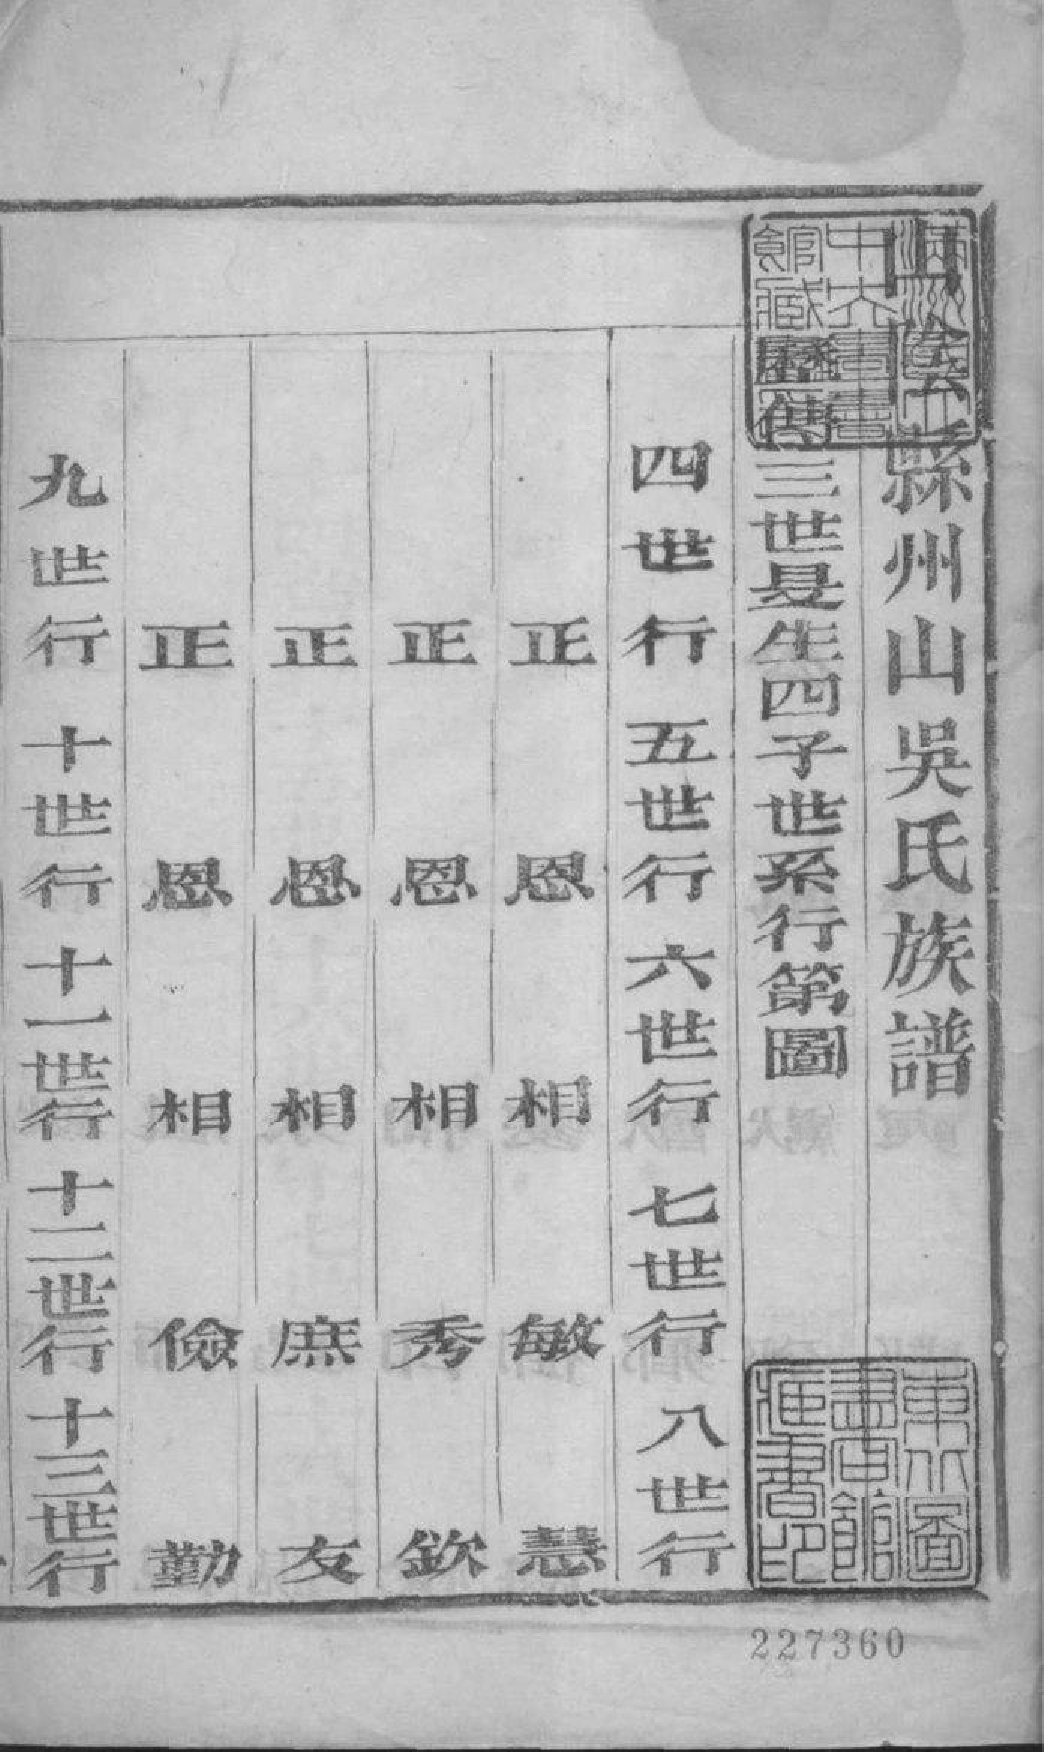 山陰縣州山吳氏族譜
歷傳三世旻生四子世系行第圖
四世行 五世行 六世行 七世行 八世行
正 恩 相 敏 慧
正 恩 相 秀 欽
正 恩 相 庶 友
正 恩 相 儉 勤
九世行 十世行 十一世行 十二世行 十三世行
東北圖書館藏書印
227360